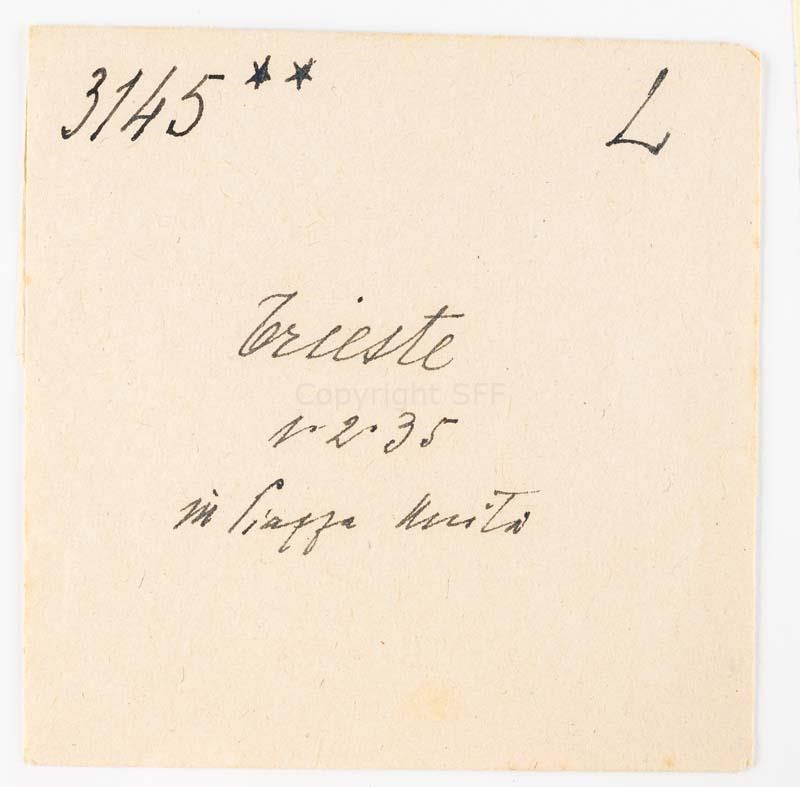 3145** L
Trieste
Copyright SFF
1·2·35
in Piazza Unità